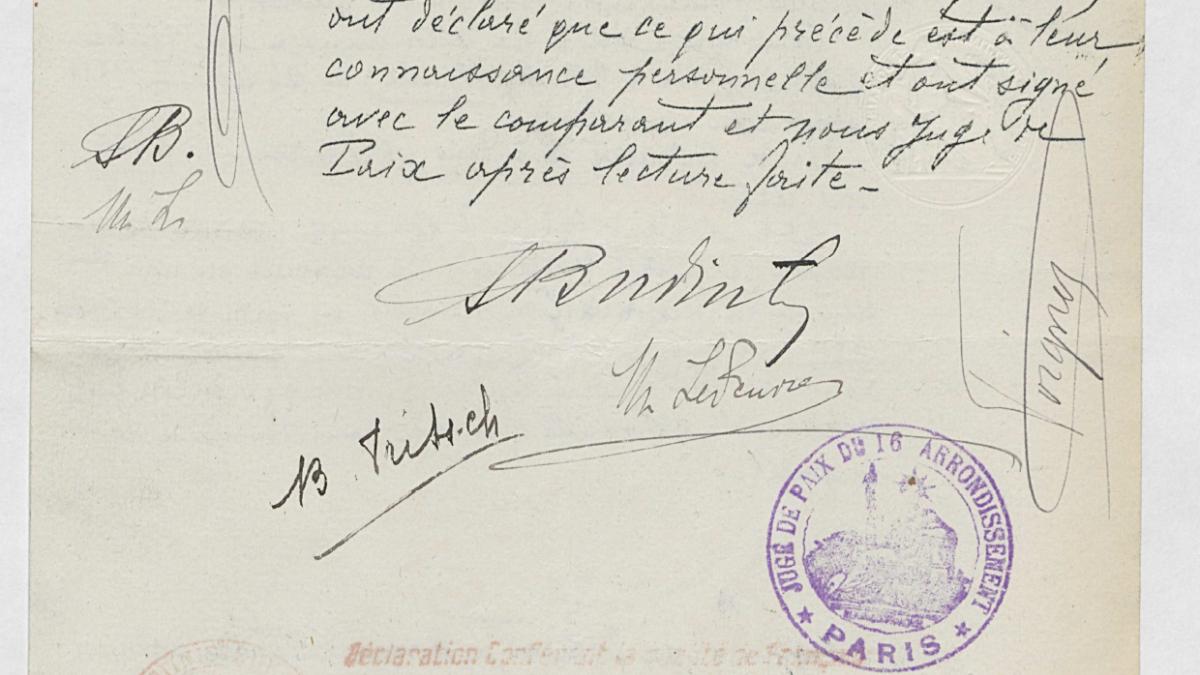 ont déclaré que ce qui précède est à leur
connaissance personnelle et ont signé
avec le comparant et nous Juge de
Paix après lecture faite_
SB.
M L
M Lefeuvre
B. Fritsch
JUGE DE PAIX DU 16 ARRONDISSEMENT
★ PARIS ★
Déclaration Conférant la qualité de Français